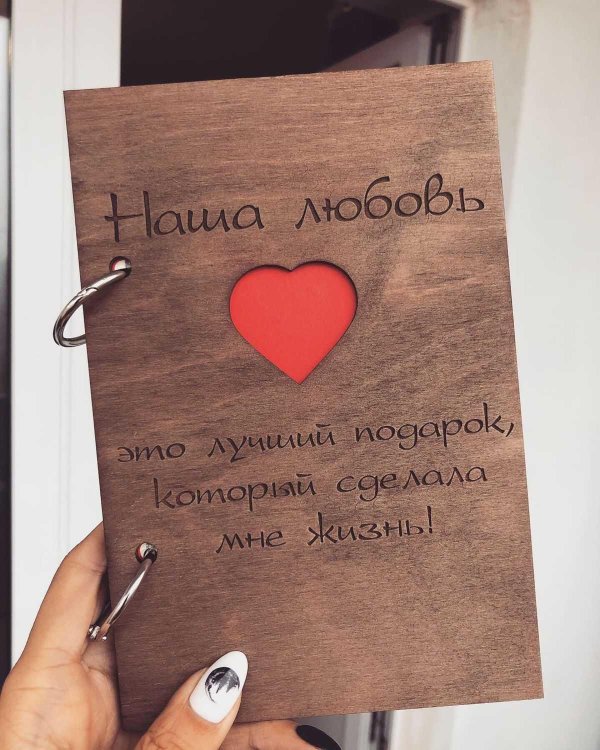 Наша любовь
это лучший подарок,
который сделала
мне жизнь!